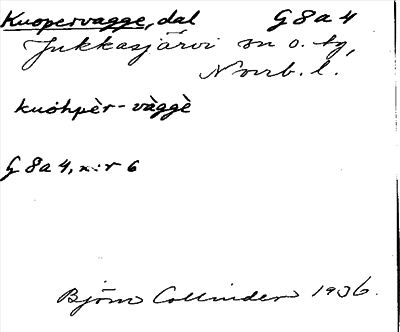 Kuopervagge, dal G 8 a 4
Jukkasjärvi sn o. tg,
Norrb. l.
kuohpèr-vàggè
G 8 a 4, n:r 6
Björn Collinder 1936.